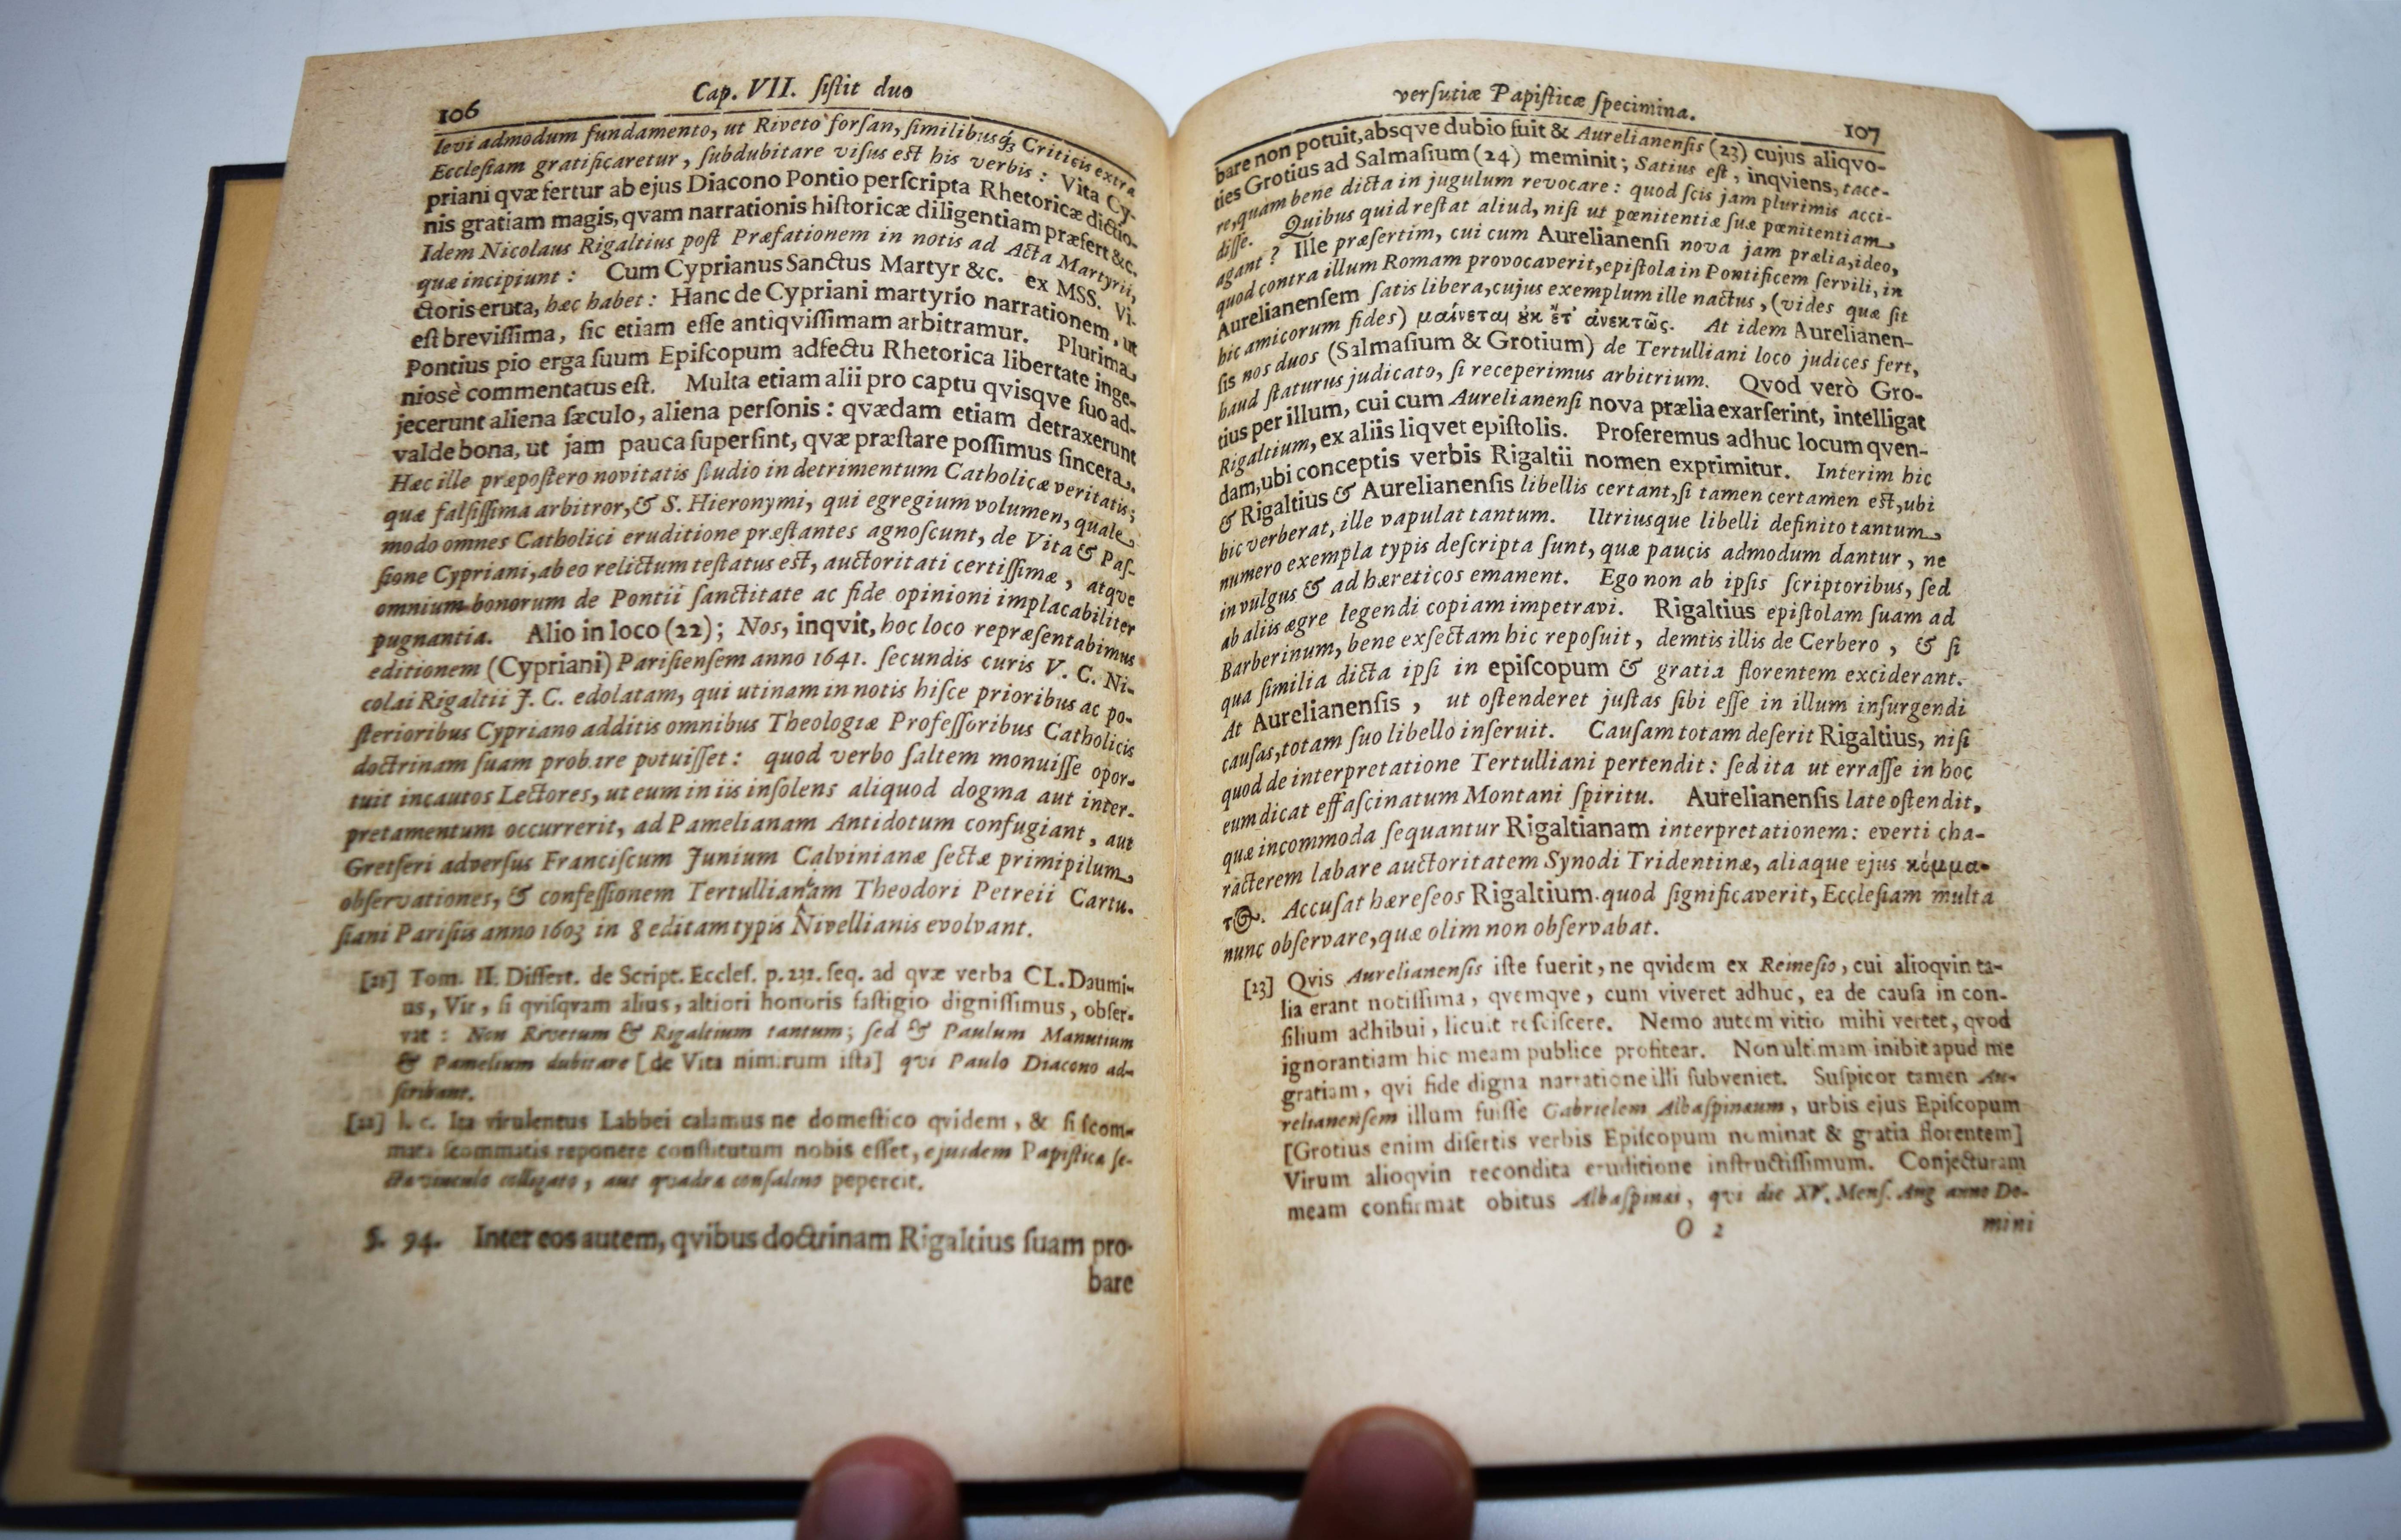 106
Cap. VII. ſiſtit duo
levi admodum fundamento, ut Riveto forſan, ſimilibusq́; Criticis extra
Eccleſiam gratificaretur, ſubdubitare viſus eſt his verbis: Vita Cy-
priani qvæ fertur ab ejus Diacono Pontio perſcripta Rhetoricæ dictio-
nis gratiam magis, qvam narrationis hiſtoricæ diligentiam præfert &c.
Idem Nicolaus Rigaltius poſt Præfationem in notis ad Acta Martyrii,
quæ incipiunt: Cum Cyprianus Sanctus Martyr &c. ex MSS. Vi-
ctoris eruta, hæc habet: Hanc de Cypriani martyrio narrationem, ut
eſt breviſſima, ſic etiam eſſe antiqviſſimam arbitramur. Plurima
Pontius pio erga ſuum Epiſcopum adfectu Rhetorica libertate inge-
niosè commentatus eſt. Multa etiam alii pro captu qvisqve ſuo ad-
jecerunt aliena ſæculo, aliena perſonis: qvædam etiam detraxerunt
valde bona, ut jam pauca ſuperſint, qvæ præſtare poſſimus ſincera.
Hæc ille præpoſtero novitatis ſtudio in detrimentum Catholicæ veritatis;
quæ falſiſſima arbitror, & S. Hieronymi, qui egregium volumen, quale
modo omnes Catholici eruditione præſtantes agnoſcunt, de Vita & Paſ-
ſione Cypriani, ab eo relictum teſtatus eſt, auctoritati certiſſimæ, atqve
omnium bonorum de Pontii ſanctitate ac fide opinioni implacabiliter
pugnantia. Alio in loco (22); Nos, inqvit, hoc loco repræſentabimus
editionem (Cypriani) Pariſienſem anno 1641. ſecundis curis V. C. Ni-
colai Rigaltii J. C. edolatam, qui utinam in notis hiſce prioribus ac po-
ſterioribus Cypriano additis omnibus Theologiæ Profeſſoribus Catholicis
doctrinam ſuam probare potuiſſet: quod verbo ſaltem monuiſſe opor-
tuit incautos Lectores, ut eum in iis inſolens aliquod dogma aut inter-
pretamentum occurrerit, ad Pamelianam Antidotum confugiant, aut
Gretſeri adverſus Franciſcum Junium Calvinianæ ſectæ primipilum
obſervationes, & confeſſionem Tertullianam Theodori Petreii Cartu-
ſiani Pariſiis anno 1603 in 8 editam typis Nivellianis evolvant.
[21] Tom. II. Diſſert. de Script. Eccleſ. p. 232. ſeq. ad qvæ verba CL. Daumi-
us, Vir, ſi qviſqvam alius, altiori honoris faſtigio digniſſimus, obſer-
vat: Non Rivetum & Rigaltium tantum; ſed & Paulum Manutium
& Pamelium dubitare [de Vita nimirum iſta] qvi Paulo Diacono ad-
ſcribant.
[22] l. c. Ita virulentus Labbei calamus ne domeſtico qvidem, & ſi ſcom-
mata ſcommatis reponere conſtitutum nobis eſſet, ejusdem Papiſtica ſe-
ctæ vinculo colligato, aut quadra conſalino pepercit.
§. 94. Inter eos autem, qvibus doctrinam Rigaltius ſuam pro-
bare
verſutiæ Papiſticæ ſpecimina.
107
bare non potuit, absqve dubio fuit & Aurelianenſis (23) cujus aliqvo-
ties Grotius ad Salmaſium (24) meminit; Satius eſt, inqviens, tace-
re, quam bene dicta in jugulum revocare: quod ſcis jam plurimis acci-
diſſe. Quibus quid reſtat aliud, niſi ut pœnitentiæ ſuæ pœnitentiam
agant? Ille præſertim, cui cum Aurelianenſi nova jam prælia, ideo,
quod contra illum Romam provocaverit, epiſtola in Pontificem ſervili, in
Aurelianenſem ſatis libera, cujus exemplum ille nactus, (vides quæ ſit
hic amicorum fides) μαίνεται ȣκ ἔτ' ἀνεκτῶς. At idem Aurelianen-
ſis nos duos (Salmaſium & Grotium) de Tertulliani loco judices fert,
haud ſtaturus judicato, ſi receperimus arbitrium. Qvod verò Gro-
tius per illum, cui cum Aurelianenſi nova prælia exarſerint, intelligat
Rigaltium, ex aliis liqvet epiſtolis. Proferemus adhuc locum qven-
dam, ubi conceptis verbis Rigaltii nomen exprimitur. Interim hic
& Rigaltius & Aurelianenſis libellis certant, ſi tamen certamen eſt, ubi
hic verberat, ille vapulat tantum. Utriusque libelli definito tantum
numero exempla typis deſcripta ſunt, quæ paucis admodum dantur, ne
in vulgus & ad hæreticos emanent. Ego non ab ipſis ſcriptoribus, ſed
ab aliis ægre legendi copiam impetravi. Rigaltius epiſtolam ſuam ad
Barberinum, bene exſectam hic repoſuit, demtis illis de Cerbero, & ſi
qua ſimilia dicta ipſi in epiſcopum & gratia florentem exciderant.
At Aurelianenſis, ut oſtenderet juſtas ſibi eſſe in illum inſurgendi
cauſas, totam ſuo libello inſeruit. Cauſam totam deſerit Rigaltius, niſi
quod de interpretatione Tertulliani pertendit: ſed ita ut erraſſe in hoc
eum dicat effaſcinatum Montani ſpiritu. Aurelianenſis late oſtendit,
quæ incommoda ſequantur Rigaltianam interpretationem: everti cha-
racterem labare auctoritatem Synodi Tridentinæ, aliaque ejus κόμμα-
τ@. Accuſat hæreſeos Rigaltium quod ſignificaverit, Eccleſiam multa
nunc obſervare, quæ olim non obſervabat.
[23] Qvis Aurelianenſis iſte fuerit, ne qvidem ex Reineſio, cui alioqvin ta-
lia erant notiſſima, qvemqve, cum viveret adhuc, ea de cauſa in con-
ſilium adhibui, licuit reſciſcere. Nemo autem vitio mihi vertet, qvod
ignorantiam hic meam publice profitear. Non ultimam inibit apud me
gratiam, qvi fide digna narratione illi ſubveniet. Suſpicor tamen Au-
relianenſem illum fuiſſe Gabrielem Albaſpinæum, urbis ejus Epiſcopum
[Grotius enim diſertis verbis Epiſcopum nominat & gratia florentem]
Virum alioqvin recondita eruditione inſtructiſſimum. Conjecturam
meam confirmat obitus Albaſpinæi, qvi die XV. Menſ. Aug anno Do-
O 2
mini